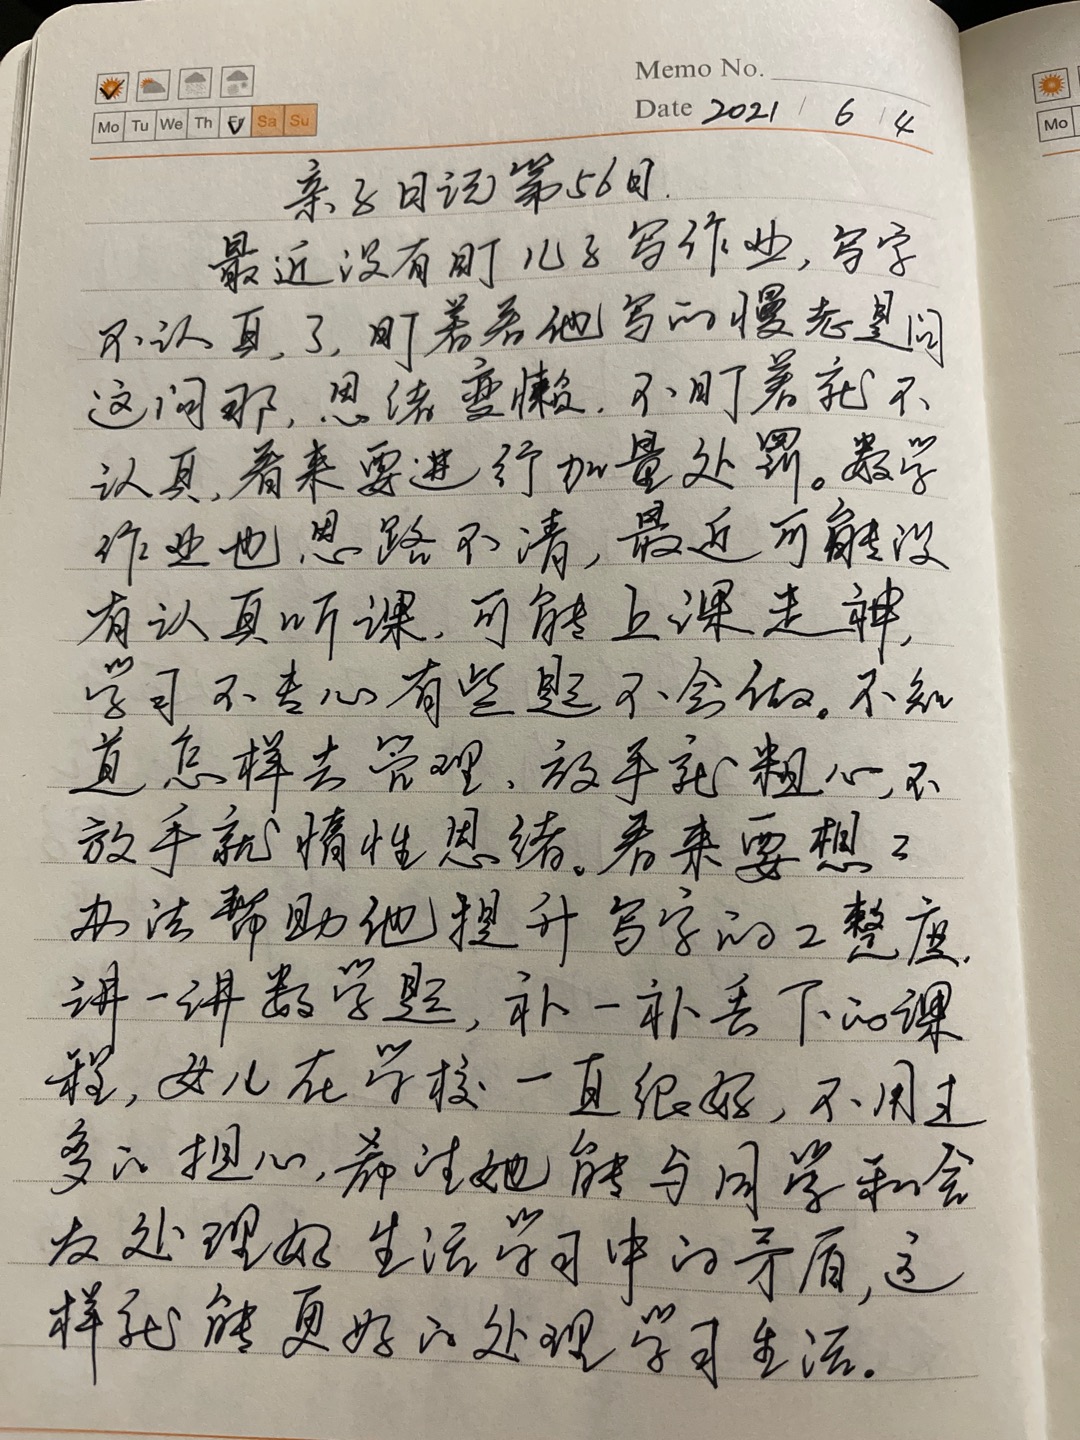 Memo No.
Mo Tu We Th Fr Sa Su
Date 2021 / 6 / 4
Mo
亲子日记第56日.
最近没有盯儿子写作业,写字
不认真了,盯着着他写的慢老是问
这问那,思绪变懒。不盯着就不
认真,看来要进行加量处罚。数学
作业也思路不清,最近可能没
有认真听课,可能上课走神,
学习不专心有些题不会做。不知
道怎样去管理、放手就粗心,不
放手就惰性思绪。看来要想
办法帮助他提升写字的工整度.
讲一讲数学题,补一补丢下的课
程,女儿在学校一直很好,不用过
多的担心,希望她能与同学和舍
友处理好生活学习中的矛盾,这
样就能更好的处理学习生活。